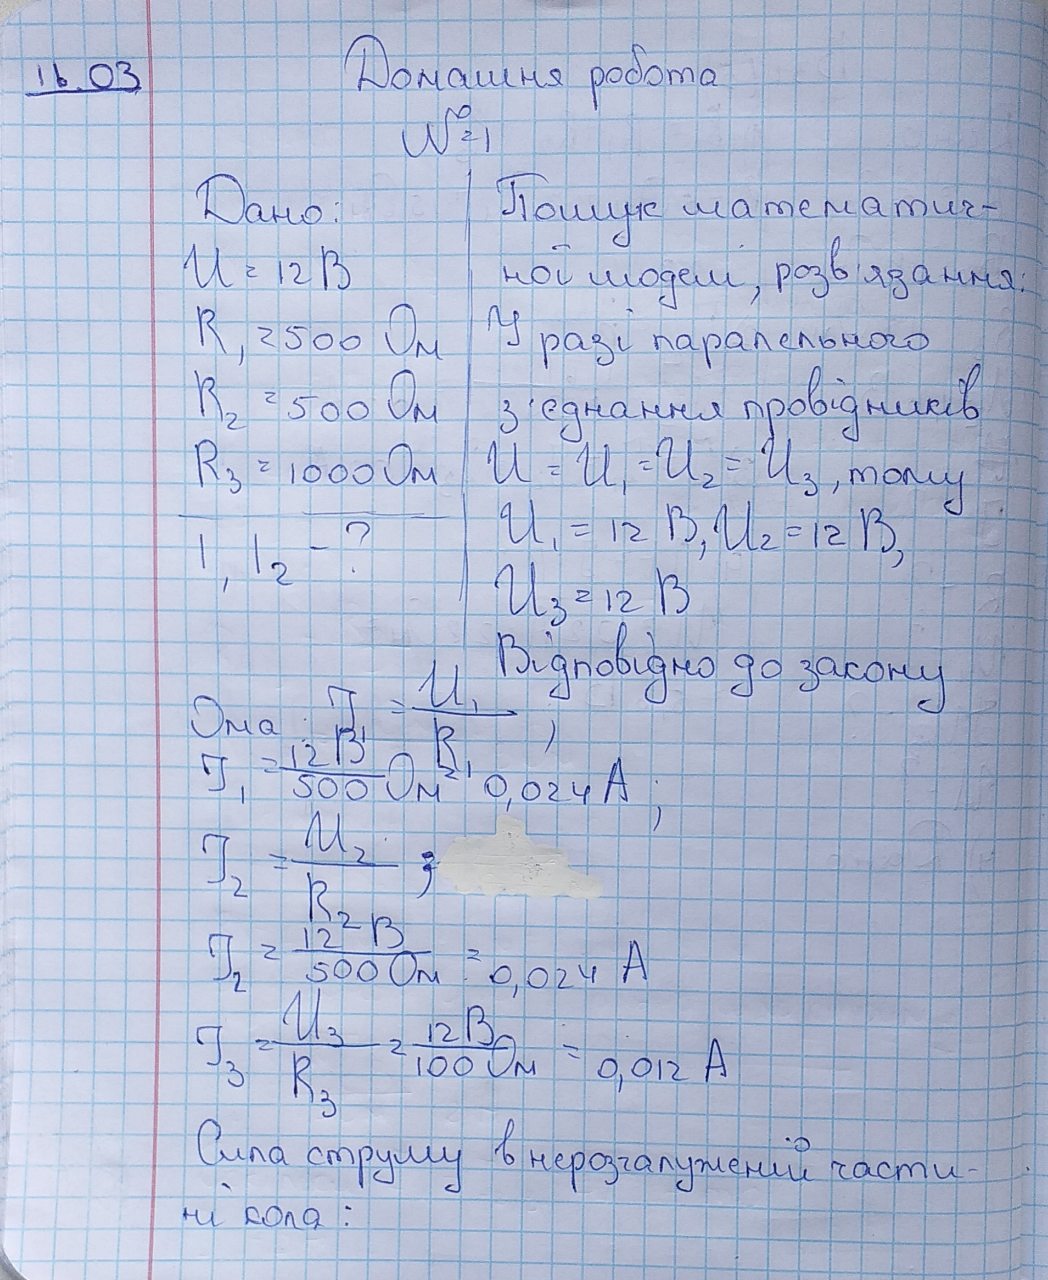 16.03
Домашня робота
№1
Дано:
U = 12 В
R₁ = 500 Ом
R₂ = 500 Ом
R₃ = 1000 Ом
I, I₂ - ?
Пошук математич-
ної моделі, розв'язання:
У разі паралельного
з'єднання провідників
U = U₁ = U₂ = U₃, тому
U₁ = 12 В, U₂ = 12 В,
U₃ = 12 В
Відповідно до закону
Ома: I₁ = U₁/R₁,
I₁ = 12 В/500 Ом = 0,024 А;
I₂ = U₂/R₂;
I₂ = 12 В/500 Ом = 0,024 А
I₃ = U₃/R₃ = 12 В/100 Ом = 0,012 А
Сила струму в нерозгалуженій части-
ні кола: